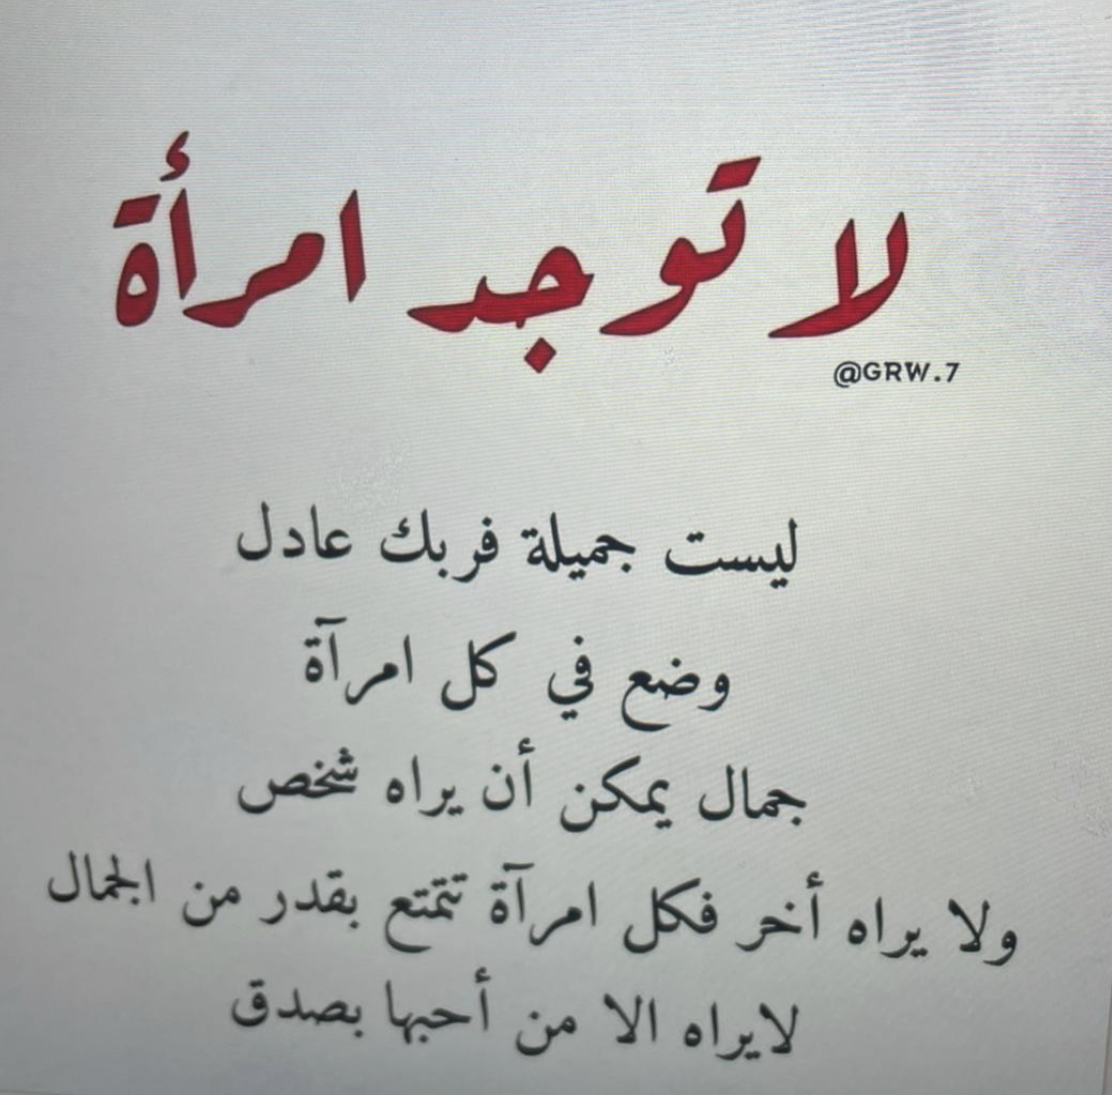 لا توجد امرأة
@GRW.7
ليست جميلة فربك عادل
وضع في كل امرآة
جمال يمكن أن يراه شخص
ولا يراه أخر فكل امرآة تتمتع بقدر من الجمال
لايراه الا من أحبها بصدق